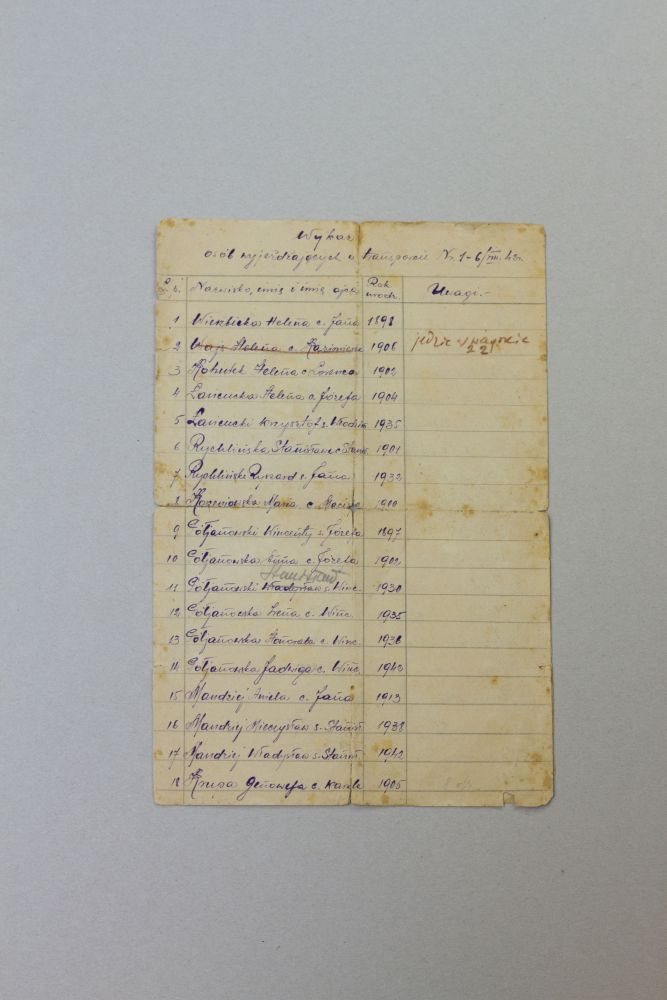 Wykaz
osób wyjeżdżających w transporcie Nr. 1 - 6/VIII. 42r.
L. p. Nazwisko, imię i imię ojca Rok urodz. Uwagi.-
1 Wierzbicka Helena c. Jana 1898
2 Helena c. Kazimierza 1906 jedzie w wagonie 22
3 Helena c. 1902
4 Łancucka Helena c. Józefa 1904
5 Łancucki Krzysztof s. Włodzim 1935
6 Rychlińska Stanisława c. Stanis 1901
7 Rychliński Ryszard s. Jana 1932
8 Maria c. Macieja 1910
9 Wincenty s. Józefa 1897
10 Anna c. Józefa 1902
Stanisław
11 Władysław s. Winc. 1930
12 Irena c. Winc. 1935
13 Honorata c. Winc. 1938
14 Jadwiga c. Winc. 1940
15 Mandziej Aniela c. Jana 1913
16 Mandziej Mieczysław s. Stanisł 1938
17 Mandziej Władysław s. Stanisł 1942
18 Genowefa c. Karola 1905